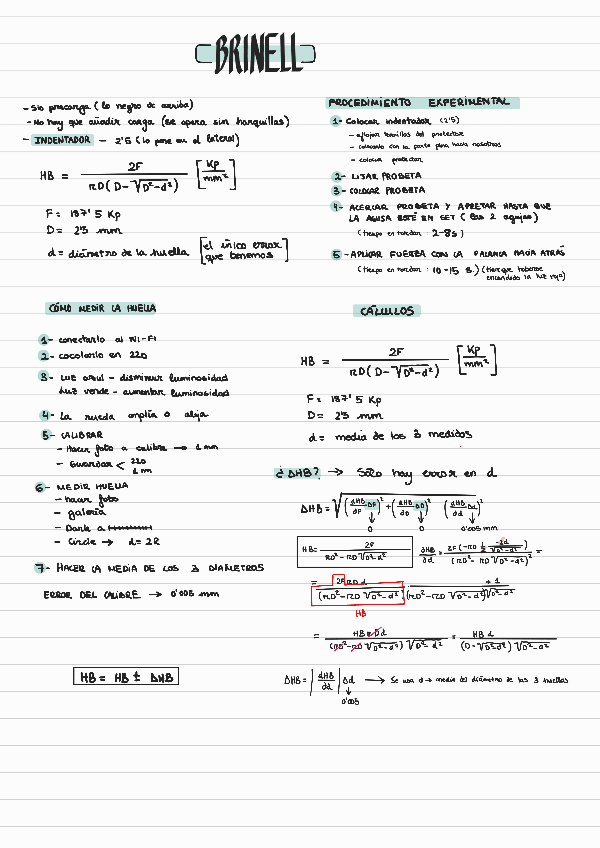 BRINELL
- Sin precarga (lo negro de arriba)
- No hay que añadir carga (se opera sin horquillas)
- INDENTADOR - 2'5 (lo pone en el lateral)
HB = 2F / πD(D-√D²-d²) [Kp/mm²]
F = 187'5 Kp
D = 2'5 mm
d = diámetro de la huella [el único error que tenemos]
PROCEDIMIENTO EXPERIMENTAL
1- Colocar indentador (2'5)
- aflojar tornillos del protector
- colocarlo con la parte plana hacia nosotros
- colocar protector
2- LIJAR PROBETA
3- COLOCAR PROBETA
4- ACERCAR PROBETA Y APRETAR HASTA QUE
LA AGUJA ESTÉ EN SET (las 2 agujas)
(tiempo en tardar: 2-8s)
5- APLICAR FUERZA CON LA PALANCA HACIA ATRÁS
(tiempo en tardar: 10-15 s.) (tiene que haberse
encendido la luz roja)
CÓMO MEDIR LA HUELLA
1- conectarlo al WI-FI
2- colocarlo en 220
3- Luz azul - disminuir luminosidad
Luz verde - aumentar luminosidad
4- La rueda amplía o aleja
5- CALIBRAR
- Hacer foto a calibre → 1 mm
- Guardar < 220
1 mm
6- MEDIR HUELLA
- hacer foto
- galería
- Darle a
- Circle → d=2R
7- HACER LA MEDIA DE LOS 3 DIÁMETROS
ERROR DEL CALIBRE → 0'005 mm
HB = HB ± ΔHB
CÁLCULOS
HB = 2F / πD(D-√D²-d²) [Kp/mm²]
F = 187'5 Kp
D = 2'5 mm
d = media de las 3 medidas
¿ΔHB? → Sólo hay error en d
ΔHB = √(∂HB/∂F ΔF)² + (∂HB/∂D ΔD)² (∂HB/∂d Δd)²
0 0 0'005 mm
HB = 2F / πD²-πD√D²-d²
∂HB/∂d = 2F(-πD 1/2 -2d/√D²-d²) / (πD²-πD√D²-d²)² =
= 2FπD d / (πD²-πD√D²-d²) · 1 / (πD²-πD√D²-d²)√D²-d²
HB
= HB πDd / (πD²-πD√D²-d²)√D²-d² = HB d / (D-√D²-d²)√D²-d²
ΔHB = |∂HB/∂d| Δd → Se usa d → media del diámetro de las 3 huellas
0'005